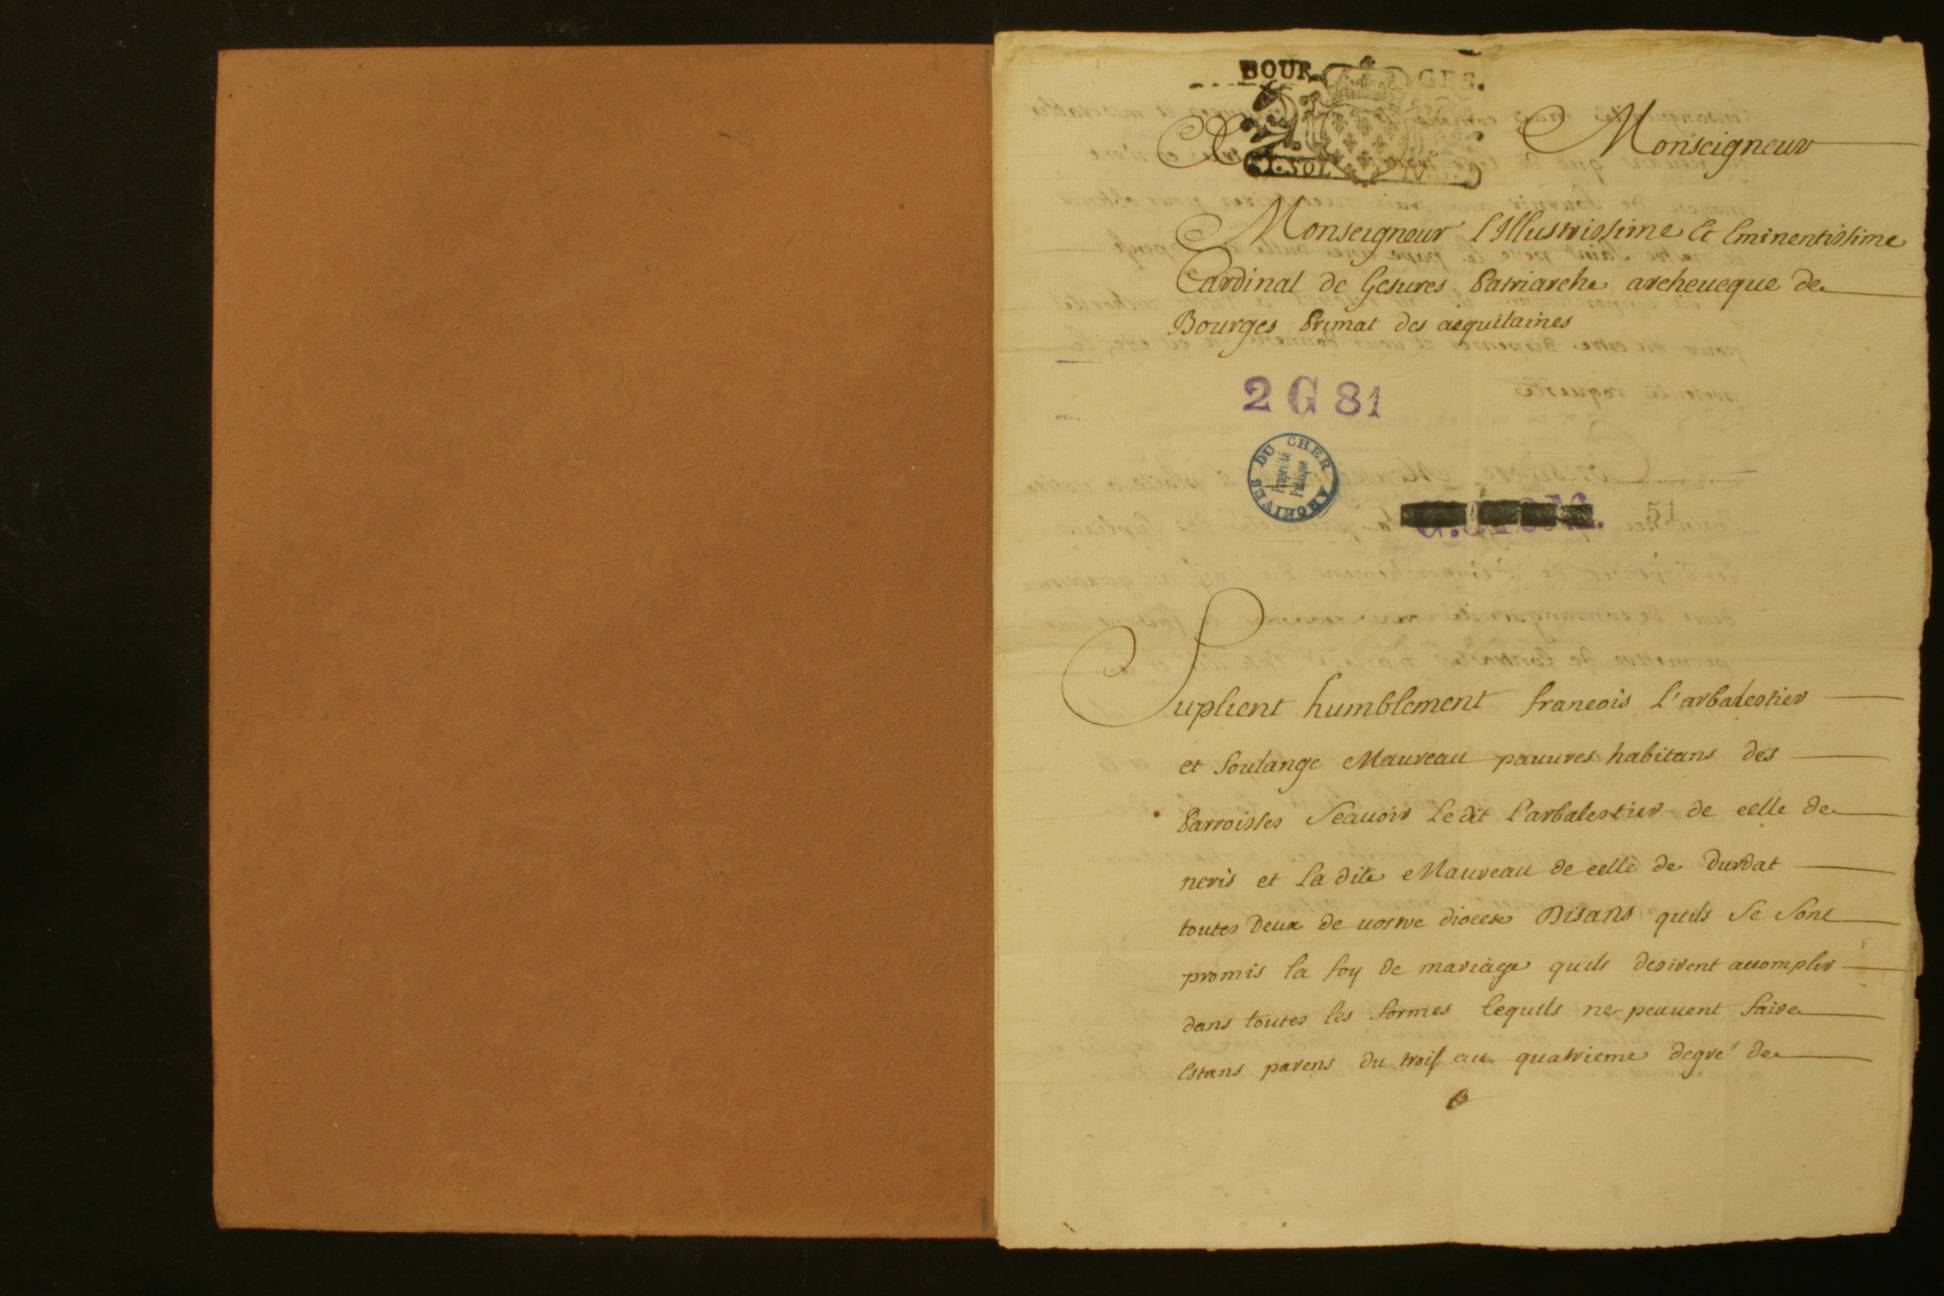 BOUR GES.
1. SOL
A Monseigneur
Monseigneur l'Illustrissime Et Eminentissime
Cardinal de Gesvres Patriarche archeveque de
Bourges Primat des acquitaines
2 G 81
ARCHIVES DU CHER
Propriété
Publique
51
Suplient humblement francois l'arbalestier
et Soulange Mauveau pauvres habitans des
Parroisses Scauoir Ledit Larbalestier de celle de
neris et La dite Mauveau de celle de durdat
toutes Deux de vostre diocese Disans quils Se Sont
promis la foy de mariage quils desirent accomplir
dans toutes les formes Cequils ne peuvent faire
Estans parens du trois au quatrieme degré de